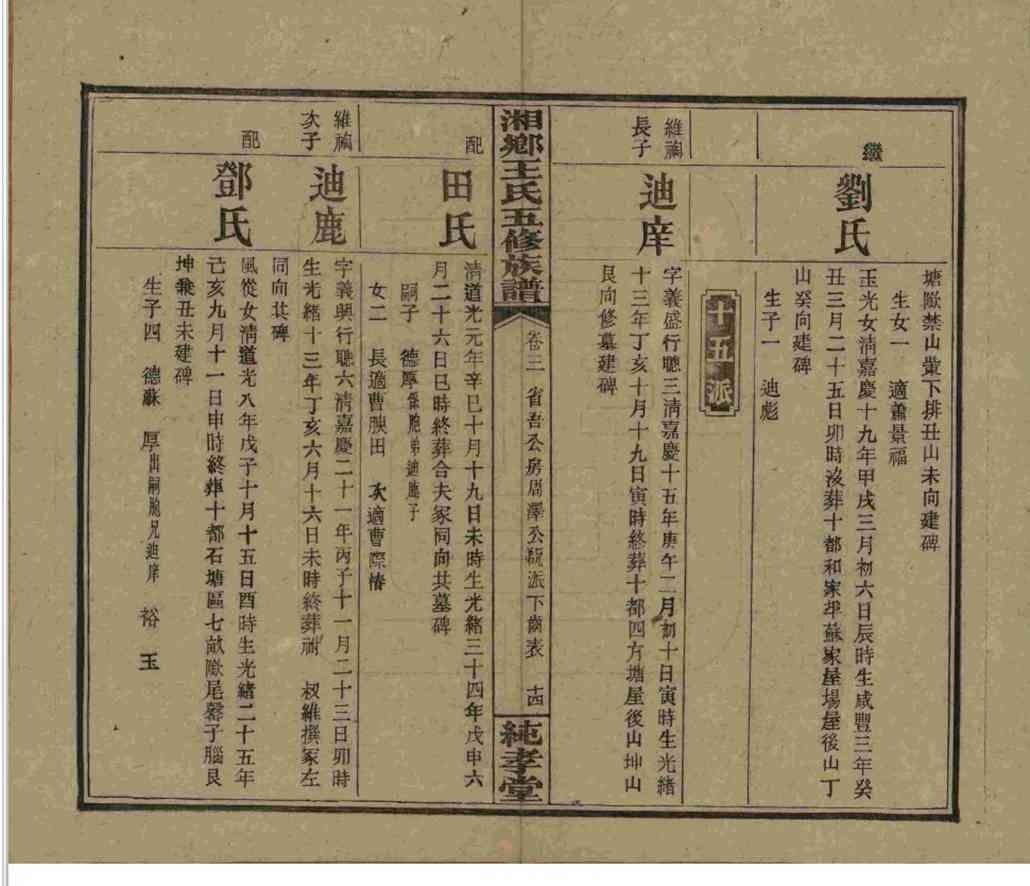 塘歐禁山
下排丑山未向建碑
生女一　適蕭景福
繼
劉氏
玉光女清嘉慶十九年甲戌三月初六日辰時生咸豐三年癸
丑三月二十五日卯時沒葬十都和家
蘇家屋場屋後山丁
山癸向建碑
生子一　迪彪
十五派
維禱
長子
迪庠
字義盛行聽三清嘉慶十五年庚午二月初十日寅時生光緒
十三年丁亥十月十九日寅時終葬十都四方塘屋後山坤山
艮向修墓建碑
湘鄉王氏五修族譜
卷三　省吾公房周澤公
派下齒表　十四
純孝堂
配
田氏
清道光元年辛巳十月十九日未時生光緒三十四年戊申六
月二十六日巳時終葬合夫冢同向共墓碑
嗣子　德厚係胞弟迪鹿子
女二　長適曹
田　次適曹際椿
維禱
次子
迪鹿
字義興行聽六清嘉慶二十一年丙子十一月二十三日卯時
生光緒十三年丁亥六月十六日未時終葬祔　叔維撰冢左
同向共碑
配
鄧氏
風從女清道光八年戊子十月十五日酉時生光緒二十五年
己亥九月十一日申時終葬十都石塘區七畝歐尾
子腦艮
坤兼丑未建碑
生子四　德蘇　厚出嗣胞兄迪庠　裕　玉